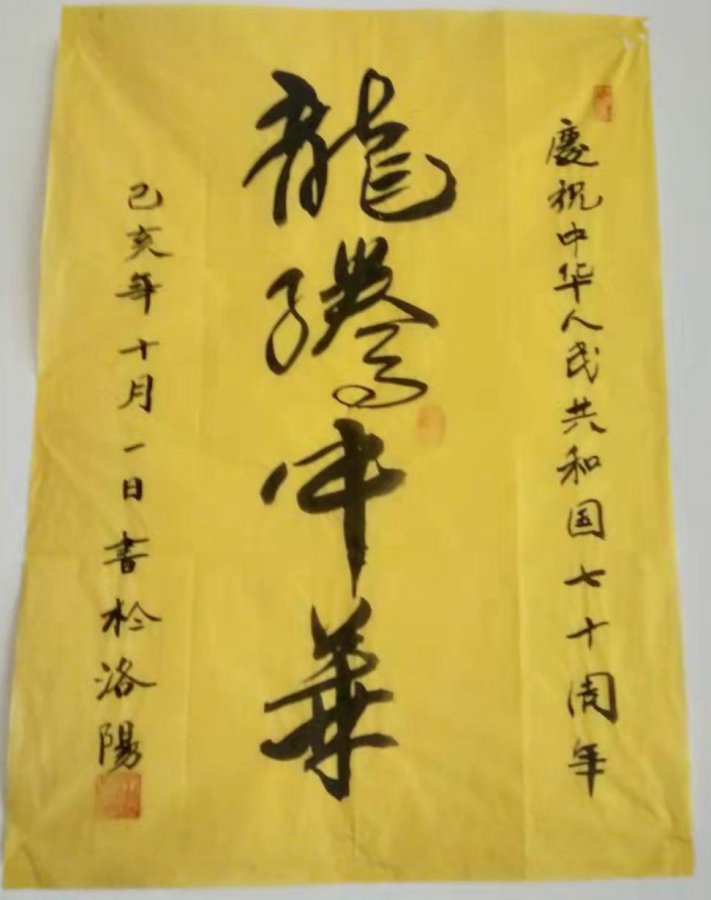 慶祝中华人民共和国七十周年
龍騰中華
己亥年十月一日書於洛陽